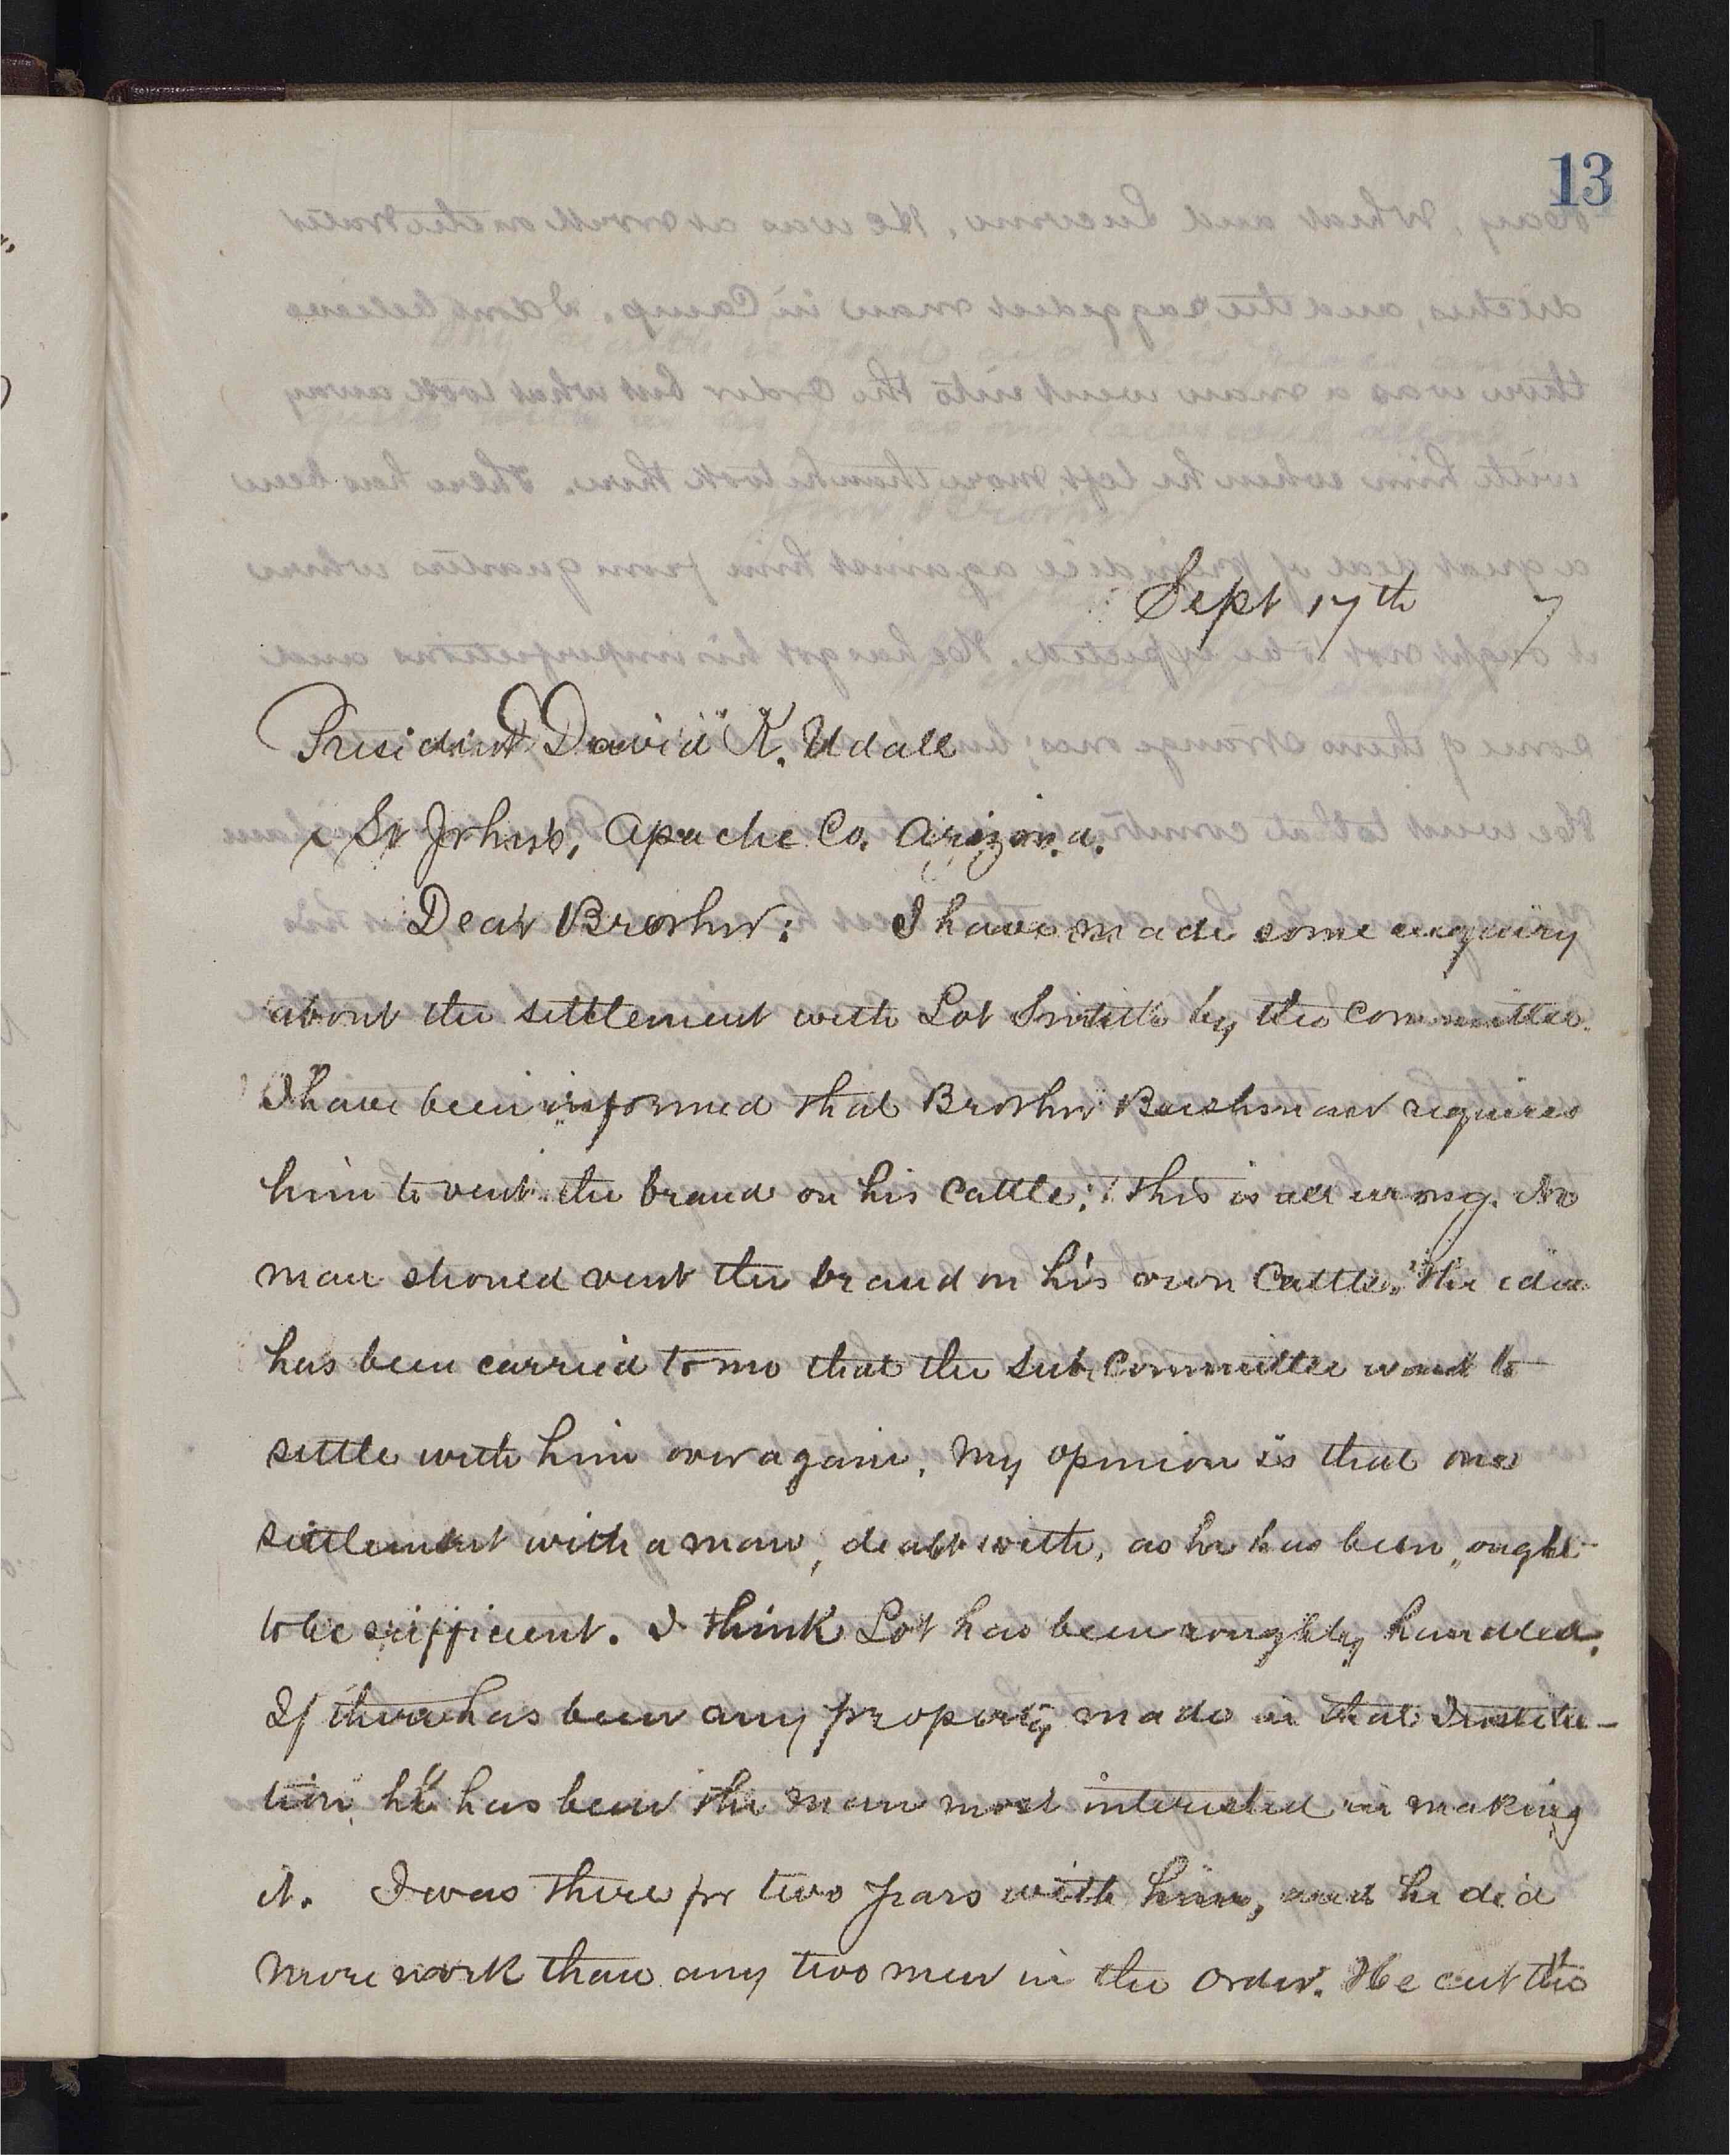 13
Sept 17th 7
President David K. Udall
St Johns, Apache Co. Arizona.
Dear Brother: I have made some enquiry
about the settlement with Lot Smith by the Committee.
I have been informed that Brother Bushman requires
him to vent the brand on his Cattle; this is all wrong. No
man should vent the brand on his own Cattle. The idea
has been carried to me that the sub Committee want to
settle with him over again. My opinion is that one
settlement with a man, dealt with, as he has been, ought
to be sufficient. I think Lot has been roughly handled.
If there has been any property made in that Institu-
tion, he has been the man most interested in making
it. I was there for two years with him, and he did
more work than any two men in the Order. He cut the